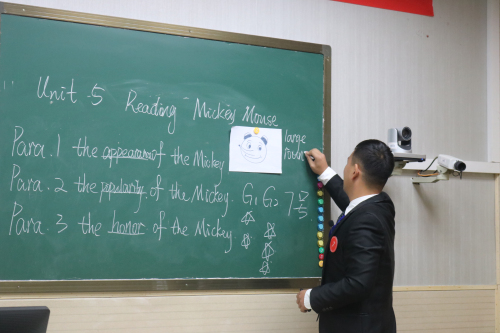 Unit 5 Reading Mickey Mouse
large
Para. 1 the appearance of the Mickey
Para. 2 the popularity of the Mickey. G1 G2
Para. 3 the honor of the Mickey.